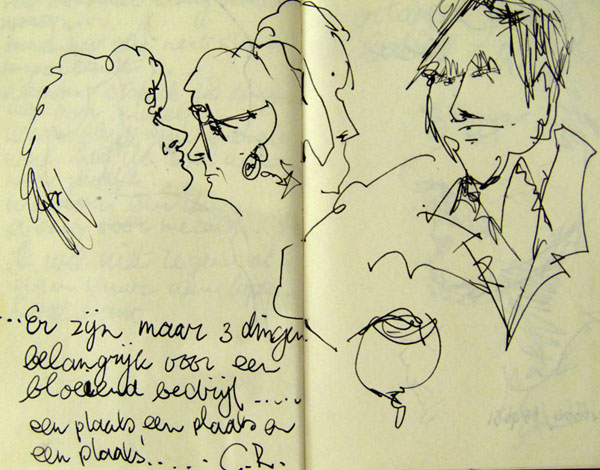 ...Er zijn maar 3 dingen
belangrijk voor een
bloeiend bedrijf.....
een plaats een plaats en
een plaats!..... C.R.